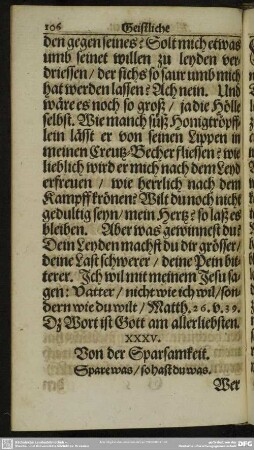 106 Geistliche
den gegen seines? Solt mich etwas
umb seinet willen zu leyden ver-
driessen / der sichs so saur umb mich
hat werden lassen? Ach nein. Und
wäre es noch so groß / ja die Hölle
selbst. Wie manch süß Honigtröpff-
lein lässt er von seinen Lippen in
meinen Creutz-Becher fliessen? wie
lieblich wird er mich nach dem Leyd
erfreuen / wie herrlich nach dem
Kampff krönen? Wilt du noch nicht
gedultig seyn / mein Hertz? so laß es
bleiben. Aber was gewinnest du?
Dein Leyden machst du dir grösser /
deine Last schwerer / deine Pein bit-
terer. Ich wil mit meinem Jesu sa-
gen: Vatter / nicht wie ich wil / son-
dern wie du wilt / Matth. 26. v. 39.
Dz Wort ist Gott am allerliebsten.
XXXV.
Von der Sparsamkeit.
Spare was / so hast du was.
Wer